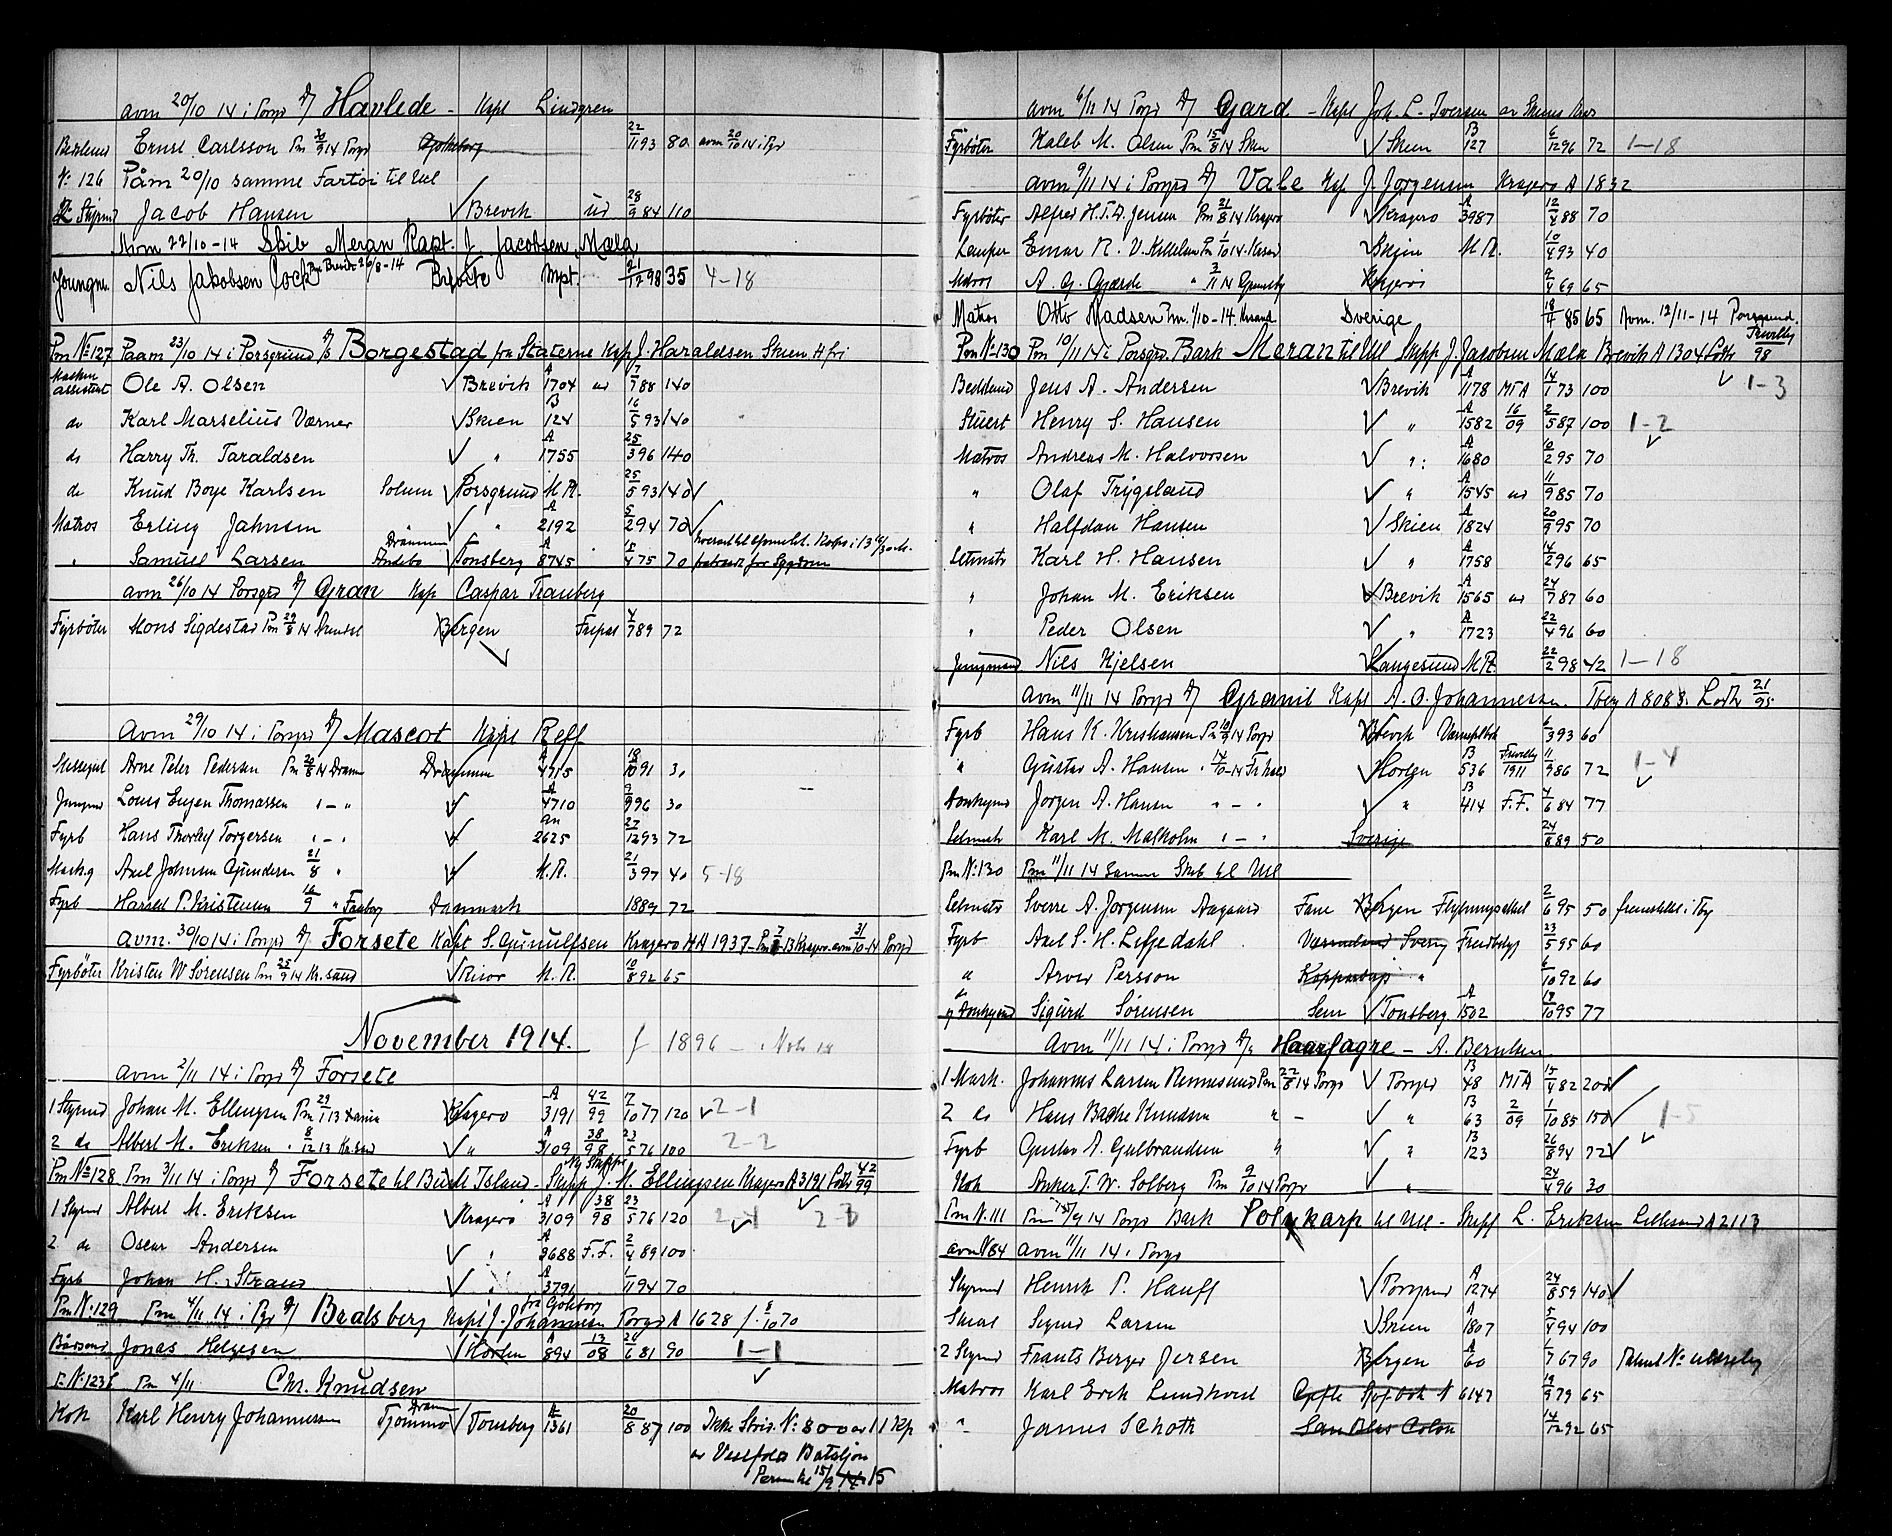 avm 20/10 14 i Porsgr D/S Havlide - Kapt Lindgren
Bestmd Ernst Carlsson Pm 30/9 14 Porsgr Gøteborg 22/11 93 80 avm 20/10 14 i Pgr
No 126 Påm 20/10 samme Fartøi til Ud
2 Styrmd Jacob Hansen Brevik ud 28/9 84 110
Avm 22/10-14 Skib Meran Kapt. J. Jacobsen, Mæla
Joungm. Nils Jakobsen Cock Brevik 26/8-14 Mpt. 21/12 98 35 4-18
Pm No 127 Paam 23/10 14 i Porsgrund D/S Borgestad fra Staterne Kap J. Haraldsen Skien A fri
Maskinassistent Ole A. Olsen Brevik A 1704 ud 7/7 88 140
do Karl Marselius Værner Skien B 124 16/5 93 140
do Harry Th. Taraldsen " A 1755 25/3 96 140
do Knud Boye Karlsen Solum Porsgrund M.R. 25/5 93 140
Matros Erling Jahnsen " " A 2192 5/2 94 70
" Samuel Larsen Drammen Andebo Tønsberg A 8745 15/4 75 70
avm 26/10 14 Porsgrd D/S Gran Kap Caspar Tranberg
Fyrbøter Mons Sigdestad Pm 29/8 14 Bergen Fripas 4/7 89 72
Avm 29/10 14 i Porsgr D/S Mascot Kapt Reff
Messegut Arne Peter Pedersen Pm 20/8 14 Dram Drammen A 4715 18/10 91 30
Jungmd Louis Eugen Thomassen " - " A 4710 9/9 96 30
Fyrb Hans Thorleif Torgersen " - " an 2625 27/12 93 72
Mask.g Axel Johnsen Gundersen 21/8 " M.R. 21/3 97 40 5-18
Fyrb Harald P. Kristensen 16/9 " Faaborg Danmark 1889 72
avm. 30/10 14 i Porsgr D/S Forsete Kapt S. Gunulfsen Kragerø A 1937 - 13 Kragerø avm 31/10-14 Porsgr
Fyrbøter Kristen W Sørensen Pm 25/9 14 Kr.sand Risør M.R. 10/8 92 65
November 1914. f 1896 -
avm 2/11 14 i Porsgr D/S Forsete
1 Styrmd Johan M. Ellingsen Pm 29/1 13 Kragerø A 3191 42/99 7/10 77 120 2-1
2 do Albert M. Eriksen " 8/12 13 Kr.sand " A 3109 38/98 23/5 76 100 2-2
Pm No 128 Pm 3/11 14 i Porsgr D/S Forsete til Island - Ny Skipper Skipp J. M. Ellingsen Kragerø A 3191 Lods 42/99
1 Styrmd Albert M. Eriksen Kragerø A 3109 38/98 23/5 76 120
2 do Oscar Andersen " A 3688 F.F. 2/4 89 100
Fyrb Johan H. Strand " A 3791 1/11 94 70
Pm No 129 Pm 4/11 14 i Pgr D/S Bratsberg fra Gøteborg Kapt J. Johannesen Porsgr A 1628 f. 5/10 70
Baadsmd Jonas Helgesen Horten A 894 13/08 26/6 81 90 1-1
P. No 123b Pm 4/11 Chr. Knudsen
Kok Karl Henry Johannessen Dram Tjømmø Tønsberg A 1361 20/8 87 100 Ikke Strid. No 800 av 11 Kp
av Vestfold Bataljon
Perm til 15/9 15
avm 6/11 14 Porsgr D/S Gard - Kapt Joh. L. Iversen av Skiens
Fyrbøter Kaleb M. Olsen Pm 15/8 14 Skien Skien B 127 6/12 96 72 1-18
avm 9/11 14 i Porsgrd D/S Vale Kap J. Jørgensen Kragerø A 1832
Fyrbøter Alfred H.T.A. Jensen Pm 21/8 14 Kragerø Kragerø A 3987 12/4 88 70
Lemper Einar R. V. Kittelsen Pm 1/10 14. Kr.sand Skien M.R. 10/4 93 40
Matros A. G. Gjærde " 3/11 14 Grimsby Kragerø 9/4 69 65
Matros Otto Madsen Pm. 1/10-14. Kr.sand Sverige 18/4 85 65 Avm. 12/11-14 Porsgrund.
Pm No 130 Pm 10/11 14 i Porsgr. Bark Meran til Ud Skipp J. Jacobsen Mæla Brevik A 1304 Lods Frivillig 98
Bestmd Jens A. Andersen Brevik A 1178 MTA 14/1 73 100 1-3
Stuert Henry S. Hansen " A 1582 16/09 2/5 87 100 1-2
Matros Andreas M. Halvorsen " A 1680 10/2 95 70
" Olaf Trygsland " A 1545 ud 11/9 85 70
" Halfdan Hansen Skien A 1824 20/9 95 70
Letmats Karl H. Hansen " A 1758 14/2 96 65
" Johan M. Eriksen Brevik A 1565 ud 24/7 87 60
" Peder Olsen " A 1723 22/4 96 60
Jungmand Nils Kjelsen Langesund M.R. 22/2 98 42 1-18
avm 11/11 14 Porsgr D/S Granit Kapt A. O. Johannessen. Tbrg A 8083. Lods 21/95
Fyrb Hans K. Kristiansen Pm 10/9 14 Porsgr Brevik Værnepl.bok 6/3 93 60
" Gustav A. Hansen " 14/10-14 Fr.hald Horten B 536 Frivillig 1911 11/9 86 72 1-4
Donkymd Jørgen A. Hansen " - " " B 414 F.F. 4/6 84 77
Letmats Karl M. Malkolm " - " Sverige 24/8 89 50
Pm No 130 Pm 11/11 14 Samme Skib til Ud
Letmats Sverre A. Jørgensen Aagaard Fane Bergen Flytningsattest 2/6 95 50 fremstillet i Tbg
Fyrb Axel S. H. Liljedahl Værmland Sverig Fremdbdgs 23/5 95 60
" Arvid Persson Kopparberg " 6/10 92 60
" Donkymd Sigurd Sørensen Sem Tønsberg A 1502 18/10 95 77
Avm 11/11 14 i Porsgr D/S Haarfagre - A. Berntsen.
1 Mask. Johannes Larsen Rønnesund Pm 22/8 14 Porsgr Porsgrd B 48 MTA 15/4 82 200
2 do Hans Bache Knudsen " - " B 63 2/09 1/10 85 150 1-5
Fyrb Gustav A. Gulbrandsen " " B 123 26/8 94 72
Kok Anker T. W. Solberg Pm 9/10 14 Porsgr " 24/4 96 30
Pm No 111 Pm 15/9 14 Porsgr Bark Polykarp til Ud - Skipp L. Eriksen Lillesand A 2113
avm No 84 avm 11/11 14 i Porsgr
Styrmd Henrik P. Hauff Porsgrund A 1274 24/8 59 140
Sigurd Larsen Skien A 1807 5/4 94 100
2 Styrmd Frants Berger Jersen Bergen A 60 1/7 67 90 Patent No
Matros Karl Erik Lundkvist Gefle 6147 19/9 79 65
" James Schoth San Blas Colon 14/12 92 65